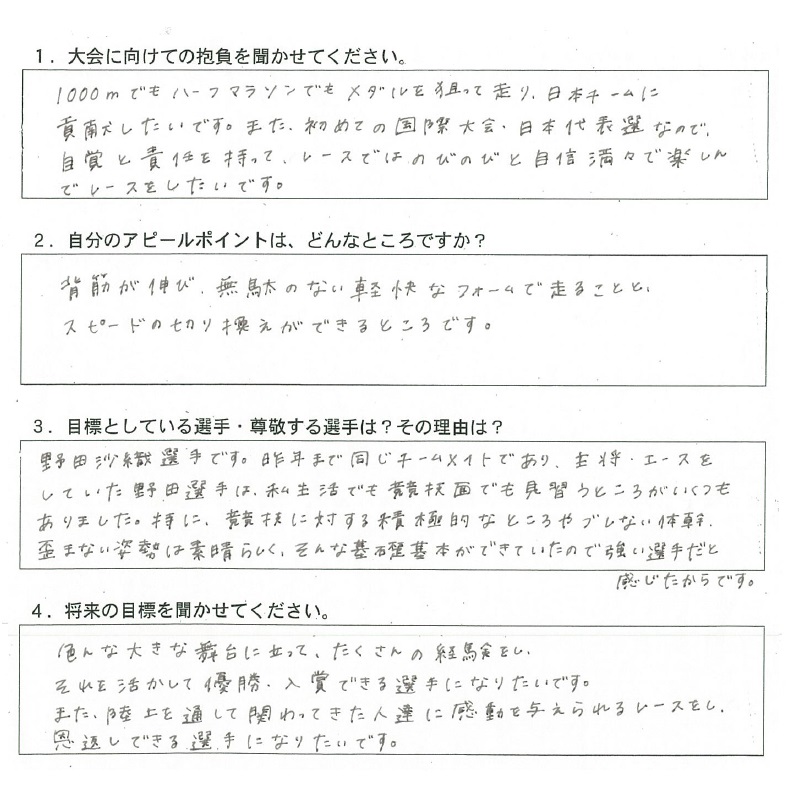 1．大会に向けての抱負を聞かせてください。
10000mでもハーフマラソンでもメダルを狙って走り、日本チームに
貢献したいです。また、初めての国際大会・日本代表選なので、
自覚と責任を持って、レースではのびのびと自信満々で楽しん
でレースをしたいです。
2．自分のアピールポイントは、どんなところですか？
背筋が伸び、無駄のない軽快なフォームで走ることと、
スピードの切り換えができるところです。
3．目標としている選手・尊敬する選手は？その理由は？
野田沙織選手です。昨年まで同じチームメイトであり、主将・エースを
していた野田選手は、私生活でも競技面でも見習うところがいくつも
ありました。特に、競技に対する積極的なところやブレない体幹、
歪まない姿勢は素晴らしく、そんな基礎基本ができていたので強い選手だと
感じたからです。
4．将来の目標を聞かせてください。
色んな大きな舞台に立って、たくさんの経験をし、
それを活かして優勝・入賞できる選手になりたいです。
また、陸上を通して関わってきた人達に感動を与えられるレースをし、
恩返しできる選手になりたいです。